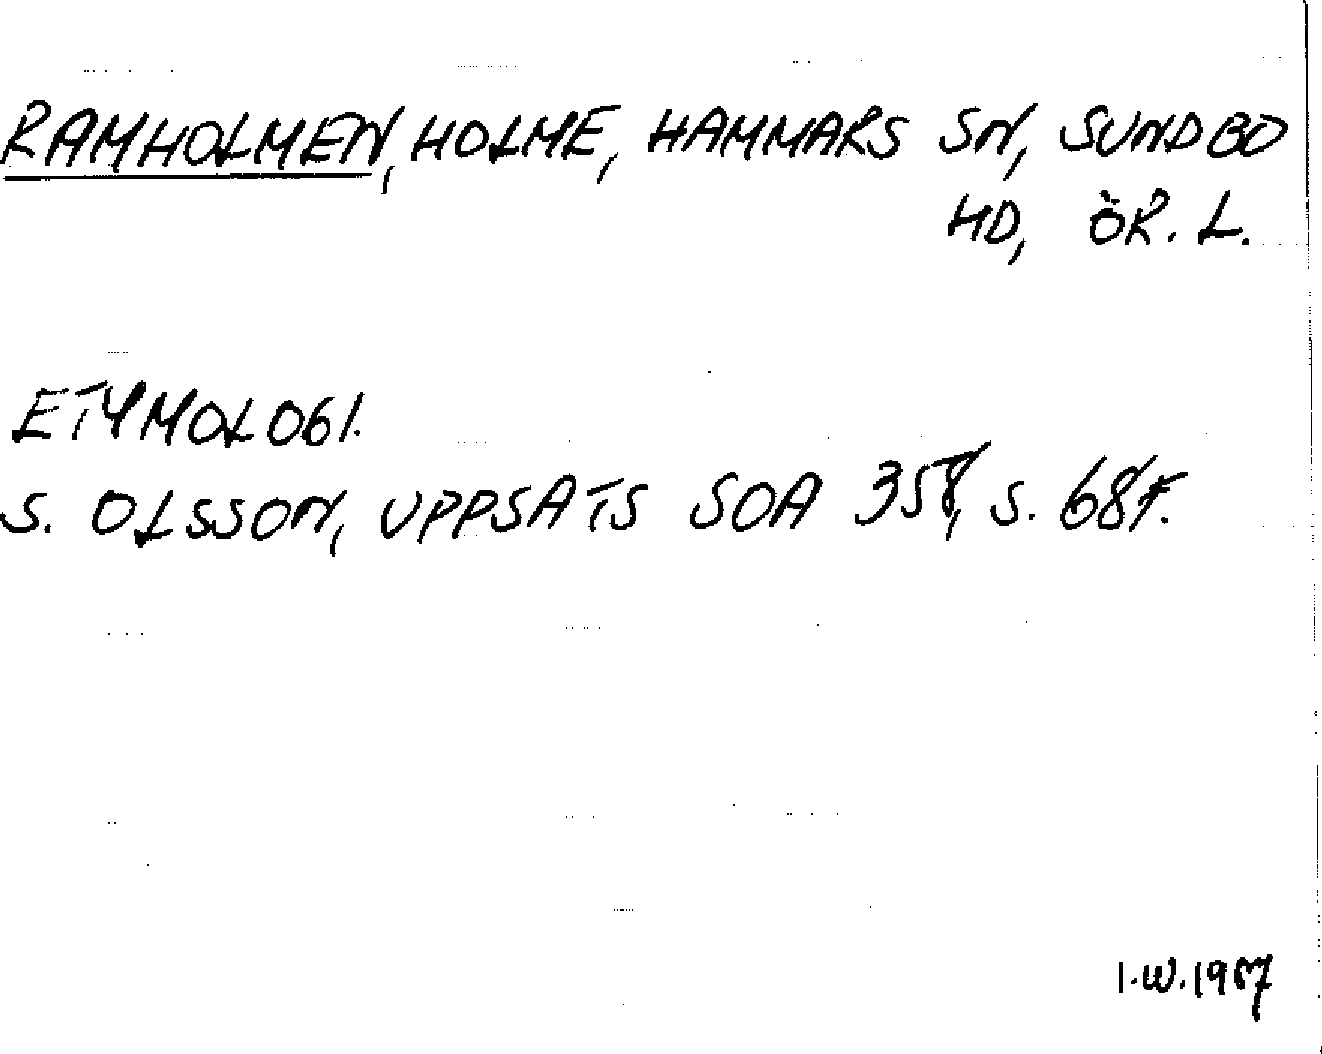 RAMHOLMEN, HOLME, HAMMARS SN, SUNDBO
HD, ÖR. L.
ETYMOLOGI.
S. OLSSON, UPPSATS SOA S. 68F.
I.W.